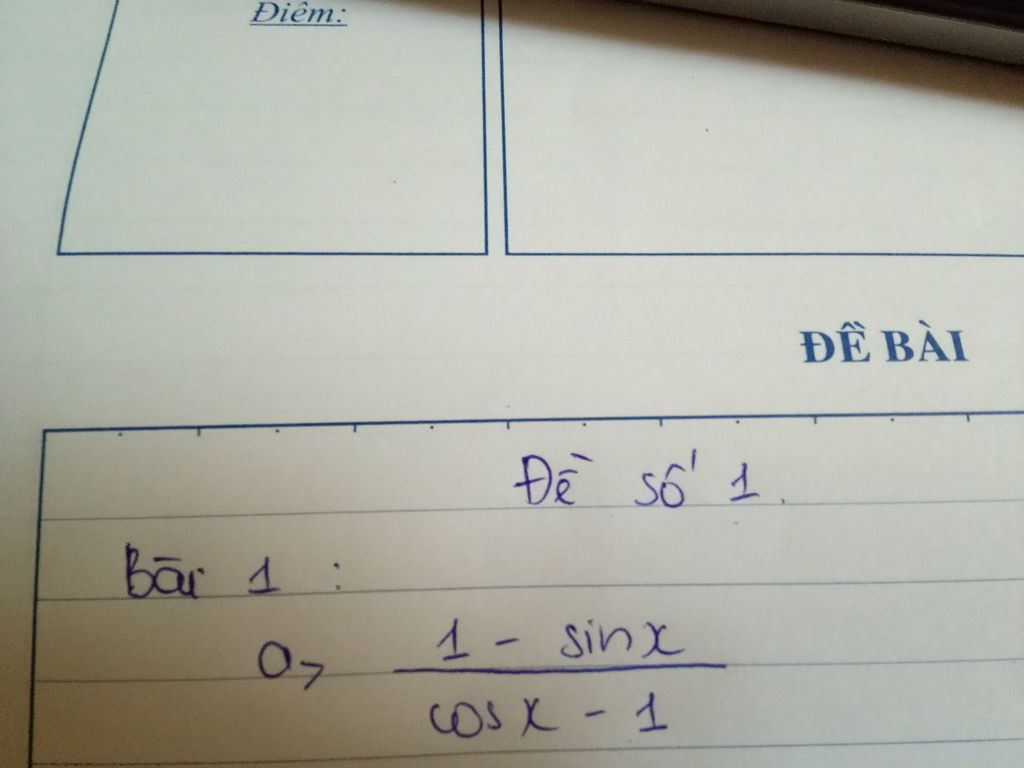 Điểm:
ĐỀ BÀI
Đề số 1.
Bài 1 :
a, 1 - sinx
cosx - 1